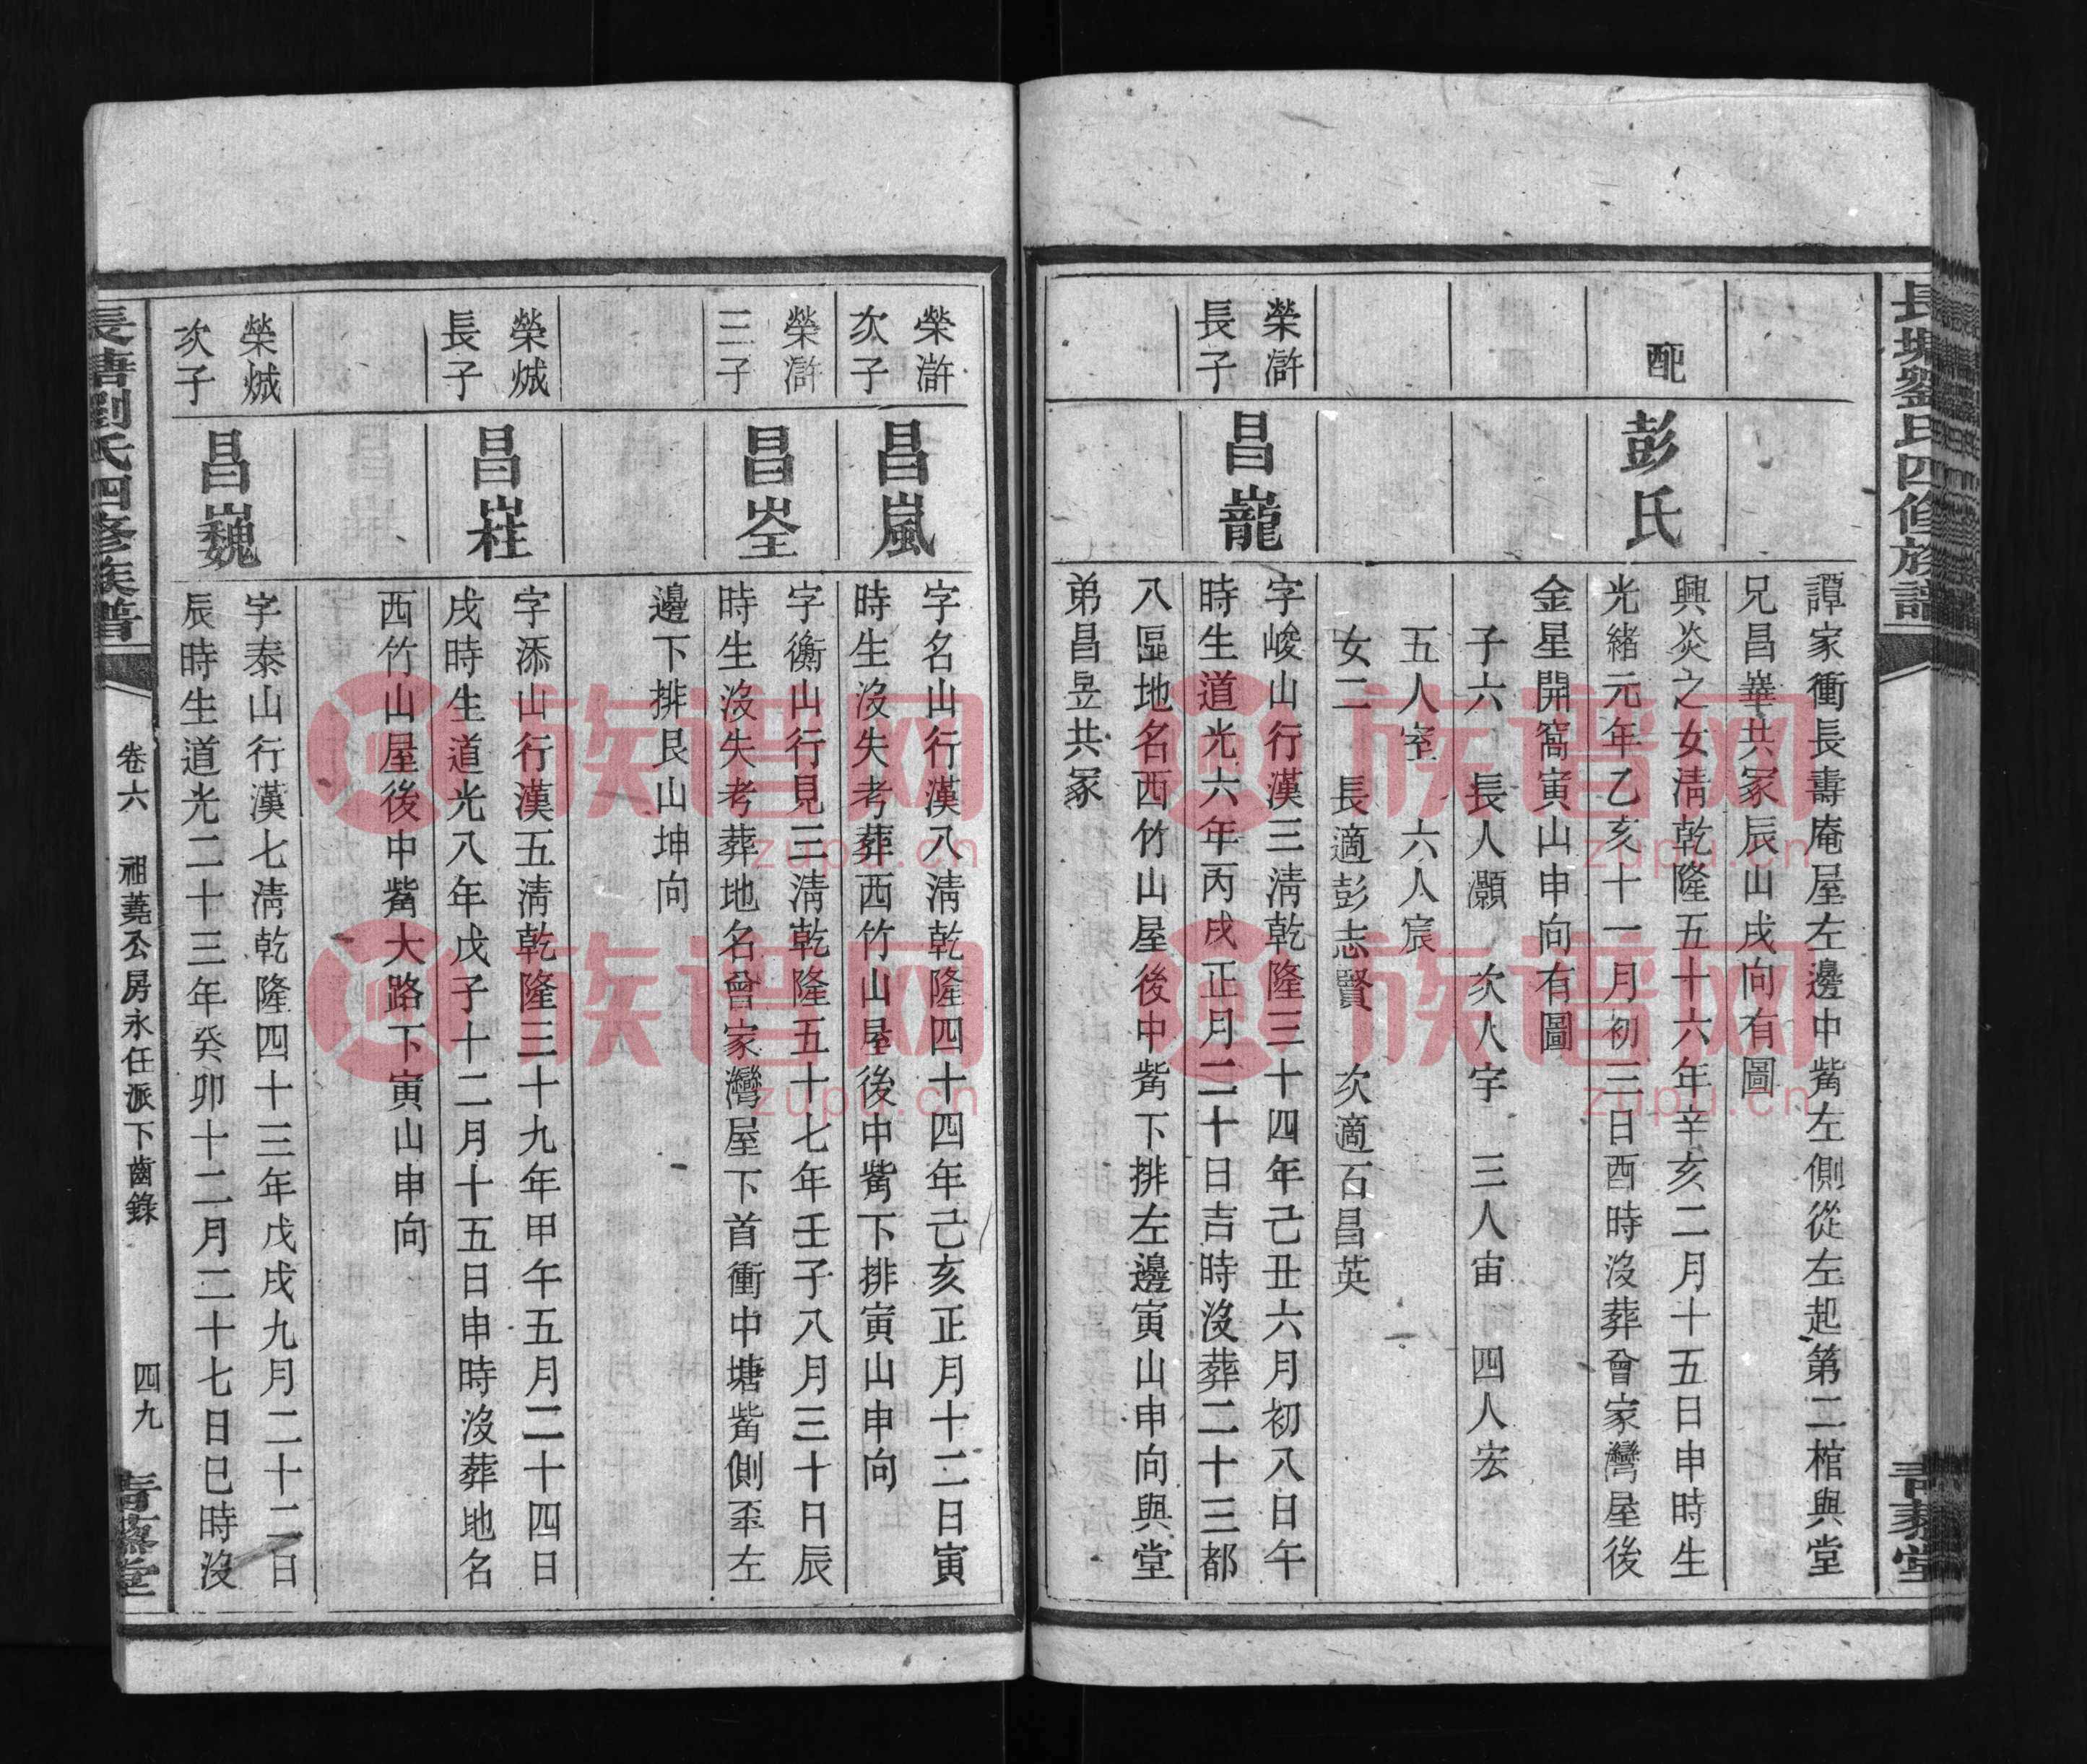 長塘劉氏四修族譜
譚家衝長壽庵屋左邊中觜左側從左起第二棺與堂
兄昌崋共冢辰山戌向有圖
配
彭氏
興炎之女淸乾隆五十六年辛亥二月十五日申時生
光緒元年乙亥十一月初三日酉時沒葬曾家灣屋後
金星開窩寅山申向有圖
子六 長人灝 次人宇 三人宙 四人宏
五人室 六人宸
女二 長適彭志賢 次適石昌英
榮滸
長子
昌巃
字峻山行漢三淸乾隆三十四年己丑六月初八日午
時生道光六年丙戌正月二十日吉時沒葬二十三都
八區地名西竹山屋後中觜下排左邊寅山申向與堂
弟昌昱共冢
榮滸
次子
昌嵐
字名山行漢八淸乾隆四十四年己亥正月十二日寅
時生沒失考葬西竹山屋後中觜下排寅山申向
榮滸
三子
昌峑
字衡山行見三淸乾隆五十七年壬子八月三十日辰
時生沒失考葬地名曾家灣屋下首衝中塘觜側丕左
邊下排艮山坤向
榮烕
長子
昌嵀
字添山行漢五淸乾隆三十九年甲午五月二十四日
戌時生道光八年戊子十二月十五日申時沒葬地名
西竹山屋後中觜大路下寅山申向
榮烕
次子
昌巍
字泰山行漢七淸乾隆四十三年戊戌九月二十二日
辰時生道光二十三年癸卯十二月二十七日巳時沒
長塘劉氏四修族譜
卷六 祖蕘公房永任派下齒錄
四九
族谱网
zupu.cn
族谱网
zupu.cn
族谱网
zupu.cn
族谱网
zupu.cn